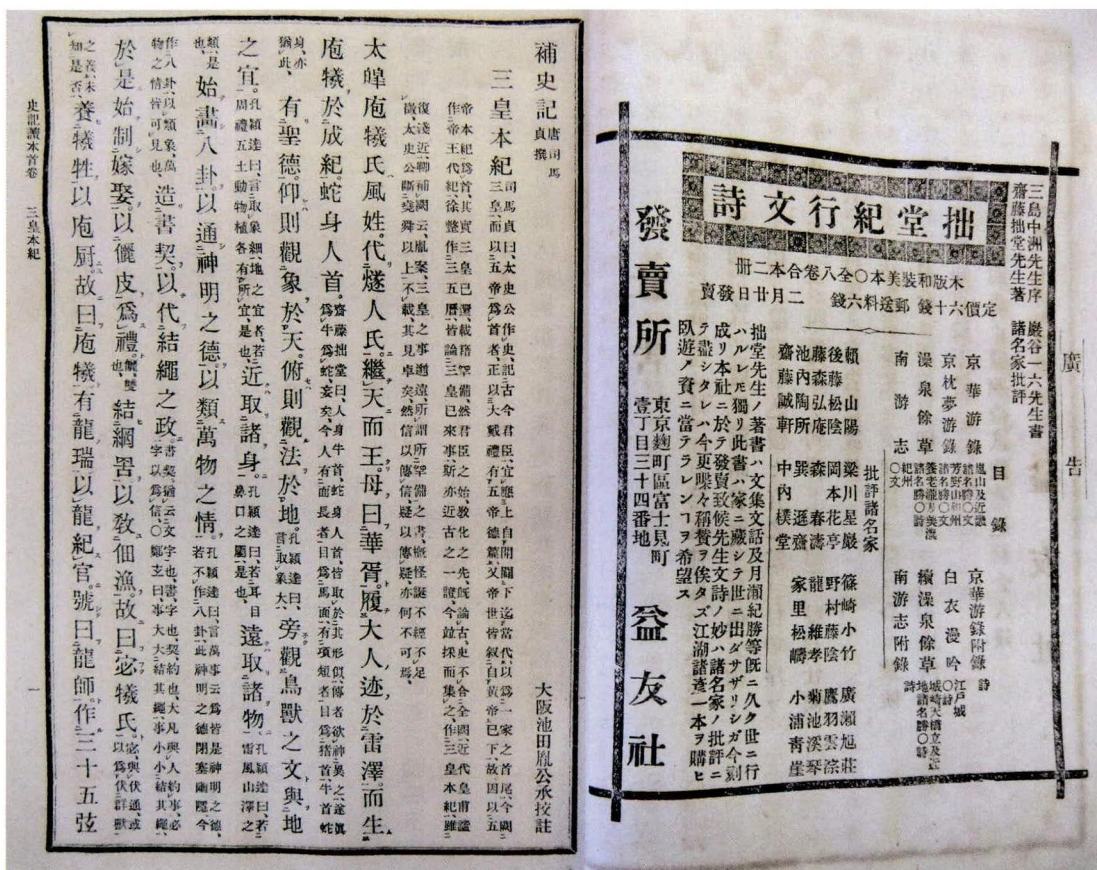 廣告
三島中洲先生序 巖谷一六先生書
齋藤拙堂先生著 諸名家批評
拙堂紀行文詩
木版和裝美本〇全八卷合本二冊
定價六十錢 郵送料六錢 二月廿日發賣
目錄
京華游錄 嵐山及近畿諸名勝〇文 京華游錄附錄 詩
枕夢游錄 芳野山和州諸名勝〇文 白衣漫吟 江戸城〇詩
澡泉餘草 養老瀧及美濃諸名勝〇詩 續澡泉餘草 城崎天橋立及近地諸名勝〇詩
南游志 紀州〇文 南游志附錄 詩
批評諸名家
賴山陽 梁川星巖 篠崎小竹 廣瀨旭莊
後藤松陰 岡本花亭 野村藤陰 鷹羽雲淙
藤森弘庵 森春濤 龍維孝 菊池溪琴
池内陶所 巽遜齋 家里松疇 小浦靑崖
齋藤誠軒 中内樸堂
拙堂先生ノ著書ハ文集文話及月瀨紀勝等既ニ久ク世ニ行
ハルレ𪜈獨リ此書ハ家ニ藏シテ世ニ出ダサザリシガ今刻
成リ本社ニ於テ發賣致候先生文詩ノ妙ハ諸名家ノ批評ニ
テ盡シタレハ今更喋々稱贊ヲ俟タズ江湖諸彥一本ヲ購ヒ
臥遊ノ資ニ當テラレンヿヲ希望ス
發賣所 東京麹町區富士見町壹丁目三十四番地 益友社
補史記 唐司馬貞撰 大阪池田胤公承校註
三皇本紀 司馬貞曰、太史公作史記、古今君臣、宜應上自開闢下迄當代、以爲一家之首尾、今闕三皇、而以五帝爲首者、正以大戴禮有五帝德篇、又帝世皆敍自黃帝已下、故因以五
帝本紀爲首、其實三皇已還、載籍罕備、然君臣之始、敎化之先、既論古史、不合全闕、近代皇甫謐作帝王代紀、徐整作三五曆、皆論三皇已來事、斯亦近古之一證、今竝採而集之、作三皇本紀、雖
復淺近、聊補闕云、胤案、三皇之事、邈遠、所謂所罕備之書、槪怪誕不經、不足徵、太史公斷堯舜以上不載、其見卓矣、然信以傳信、疑以傳疑、亦何不可焉、
太皥庖犧氏風姓。代燧人氏、繼天而王。母曰華胥。履大人迹於雷澤。而生
庖犧於成紀。蛇身人首。齋藤拙堂曰、人身牛首、蛇身人首、皆取於其形似、傳者欲神異之、遂眞爲牛爲蛇、妄矣、今人有面長者、目爲馬面、有項短者、目爲猪首、牛首蛇
身、亦猶此、有聖德。仰則觀象於天。俯則觀法於地。孔穎達曰、言取象大、旁觀鳥獸之文與地
之宜。孔穎達曰、言取象細、地之宜者、若周禮五土動物植物各有所宜、是也、近取諸身。孔穎達曰、若耳目鼻口之屬、是也、遠取諸物。孔穎達曰、若雷風山澤之
類、是也、始畫八卦。以通神明之德。以類萬物之情。孔穎達曰、言萬事云爲皆是神明之德、若不作八卦、此神明之德閉塞幽隱、今
作八卦、以類象、萬物之情皆可見也、造書契。以代結繩之政。書契、猶云文字也、書、字也、契、約也、大凡與人約事、必字以爲信、〇鄭玄曰、事大大結其繩、事小小結其繩、
於是始制嫁娶。以儷皮爲禮。儷、雙也、結網罟以敎佃漁。故曰宓犧氏。宓與伏通、或以爲伏群獸
之義、未知是否、養犧牲以庖厨。故曰庖犧。有龍瑞。以龍紀官。號曰龍師。作三十五弦
史記讀本首卷 三皇本紀 一